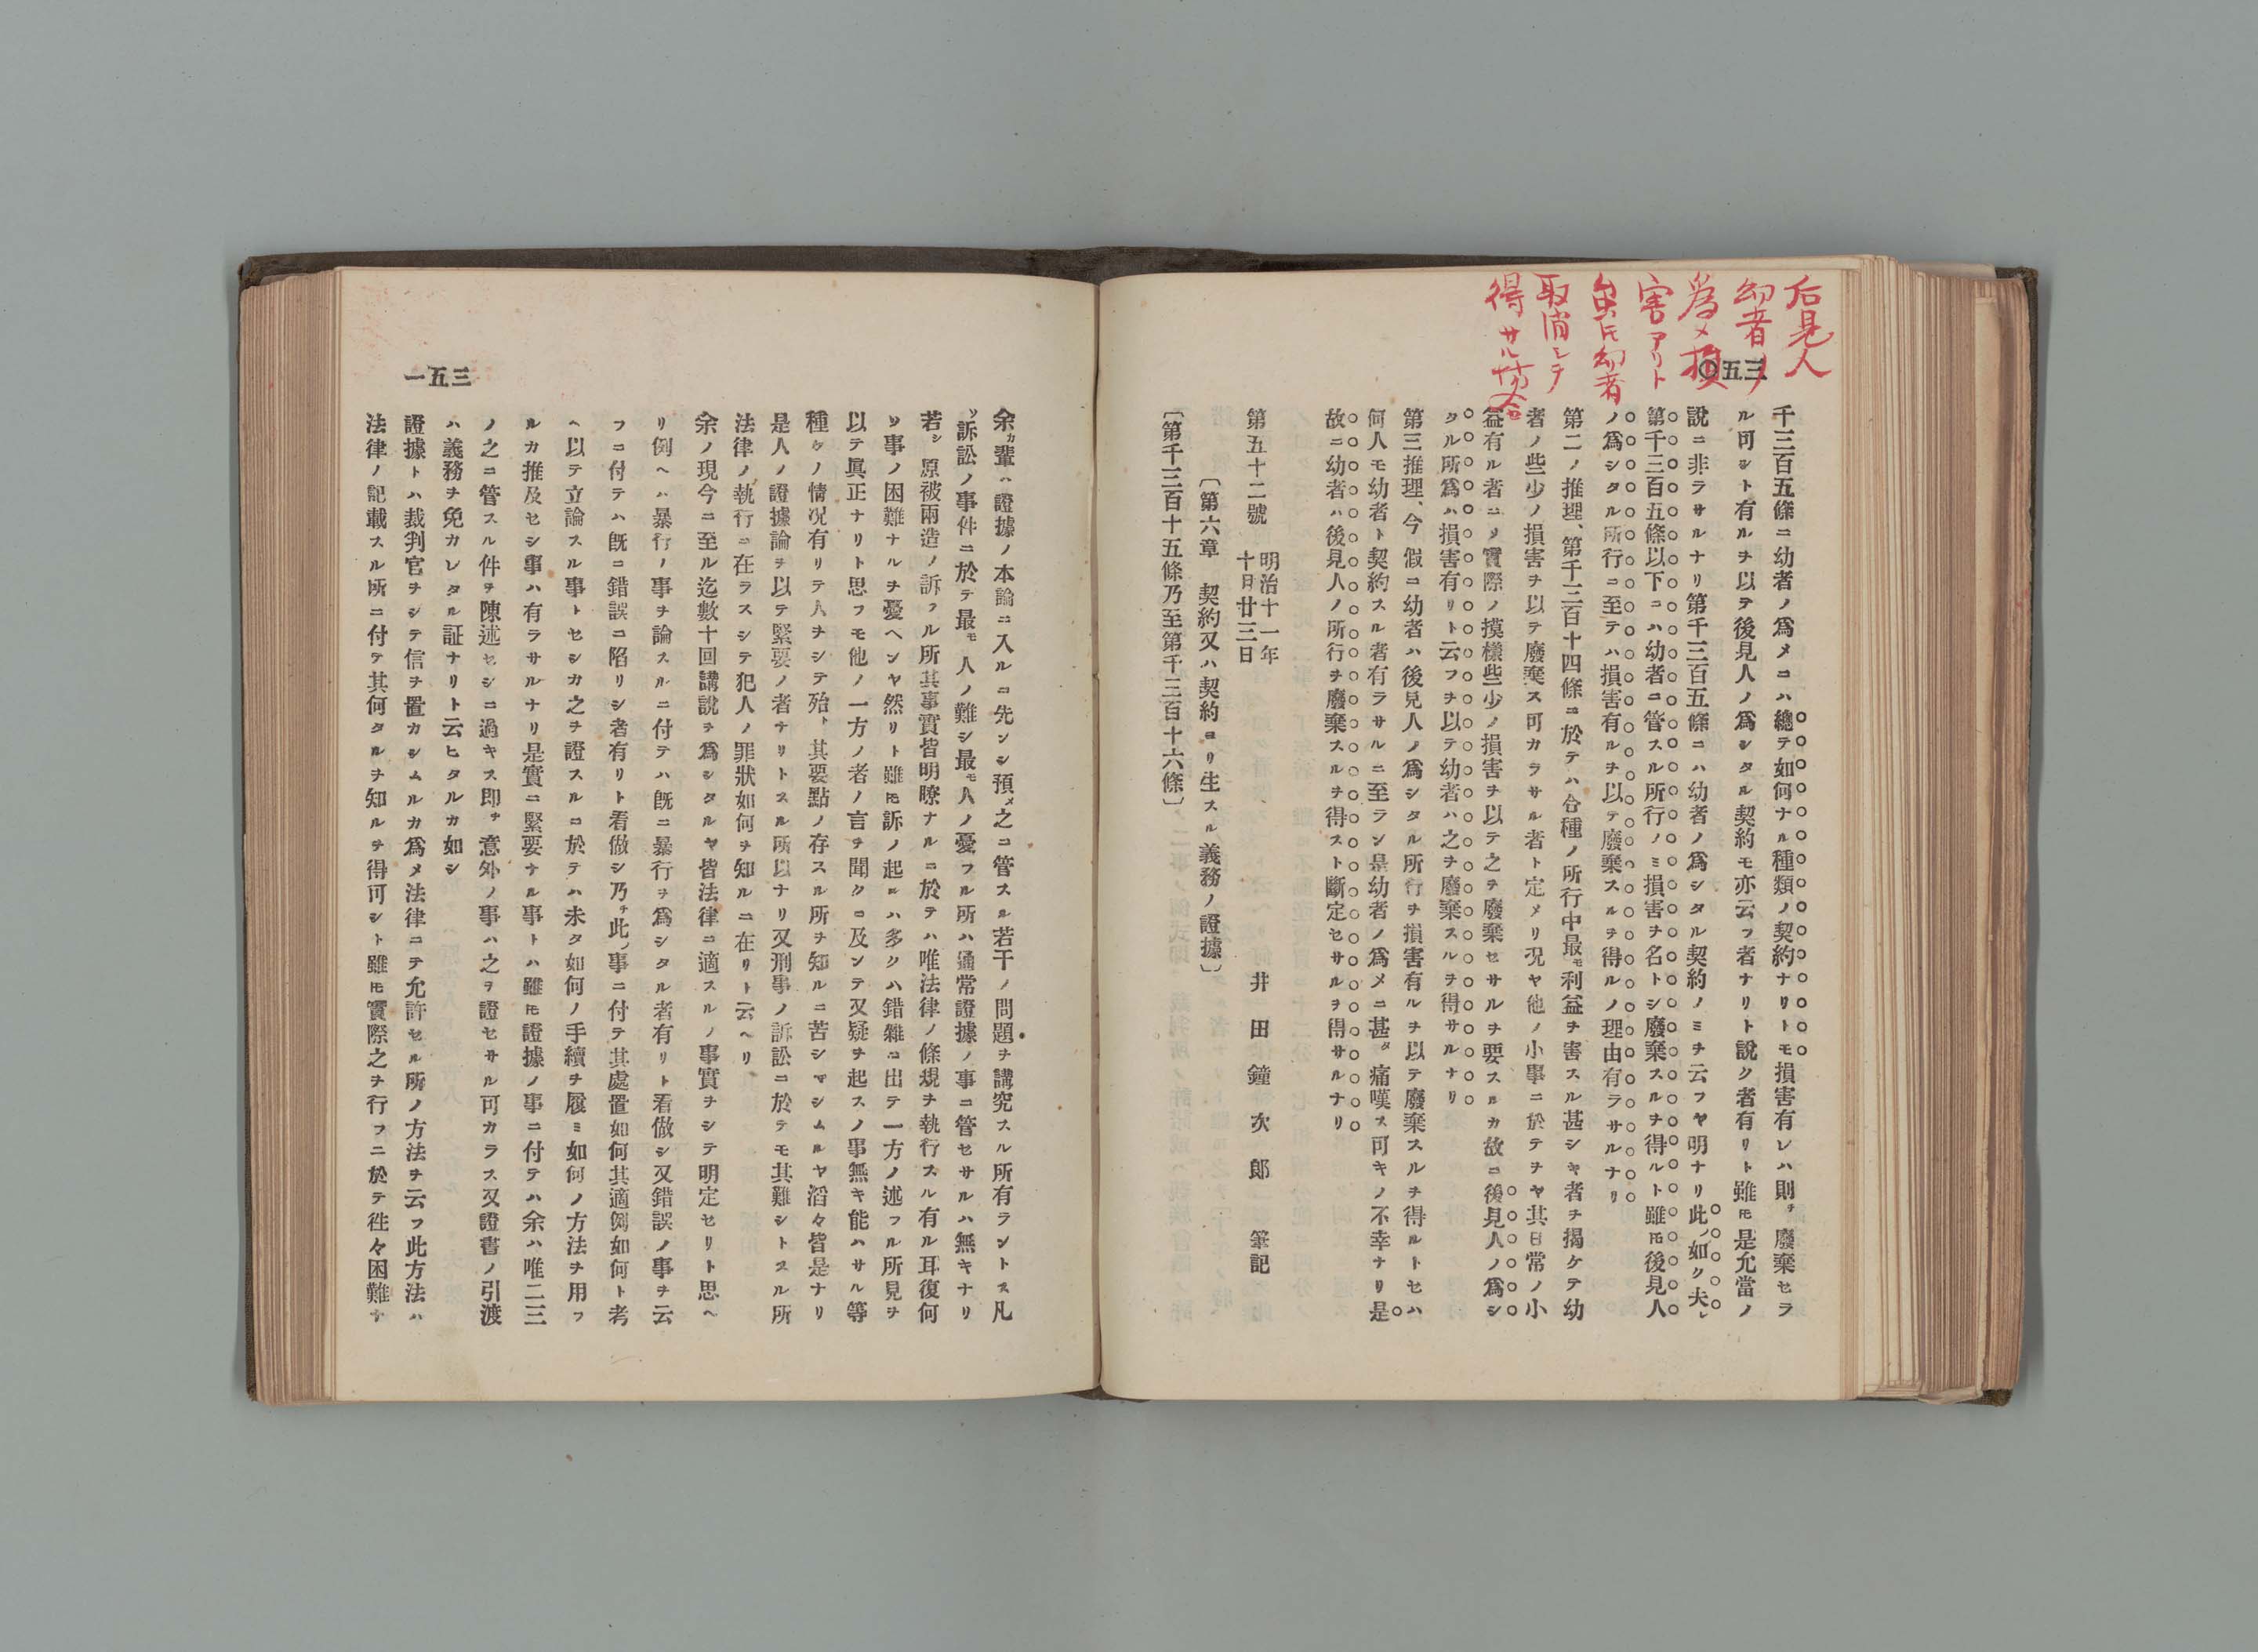 后見人
幼者ノ
為メ損
害アリト
雖𪜈幼者
取消シテ
得サル場合
三五〇
千三百五條ニ幼者ノ爲メニハ總テ如何ナル種類ノ契約ナリトモ損害有レハ則チ廢棄セラ
ル可シト有ルヲ以テ後見人ノ爲シタル契約モ亦云フ者ナリト説ク者有リト雖𪜈是允當ノ
説ニ非ラサルナリ第千三百五條ニハ幼者ノ爲シタル契約ノミヲ云フヤ明ナリ此ノ如ク夫レ
第千三百五條以下ニハ幼者ニ管スル所行ノミ損害ヲ名トシ廢棄スルヲ得ルト雖𪜈後見人
ノ爲シタル所行ニ至テハ損害有ルヲ以テ廢棄スルヲ得ルノ理由有ラサルナリ
第二ノ推理、第千三百十四條ニ於テハ合種ノ所行中最モ利益ヲ害スル甚シキ者ヲ揭ケテ幼
者ノ些少ノ損害ヲ以テ廢棄ス可カラサル者ト定メリ况ヤ他ノ小事ニ於テヲヤ其日常ノ小
益有ル者ニノ實際ノ摸樣些少ノ損害ヲ以テ之ヲ廢棄セサルヲ要スルカ故ニ後見人ノ爲シ
タル所爲ハ損害有リト云フヲ以テ幼者ハ之ヲ廢棄スルヲ得サルナリ
第三推理、今假ニ幼者ハ後見人ノ爲シタル所行ヲ損害有ルヲ以テ廢棄スルヲ得ルトセハ
何人モ幼者ト契約スル者有ラサルニ至ラン是幼者ノ爲メニ甚タ痛嘆ス可キノ不幸ナリ是
故ニ幼者ハ後見人ノ所行ヲ廢棄スルヲ得スト斷定セサルヲ得サルナリ
第五十二號　明治十一年十月廿三日　井田鐘次郎　筆記
〔第六章　契約又ハ契約ヨリ生スル義務ノ證據〕
〔第千三百十五條乃至第千三百十六條〕
三五一
余カ輩ハ證據ノ本論ニ入ルニ先ンシ預メ之ニ管スル若干ノ問題ヲ講究スル所有ラントス凡
ソ訴訟ノ事件ニ於テ最モ人ノ難シ最モ人ノ憂フル所ハ通常證據ノ事ニ管セサルハ無キナリ
若シ原被兩造ノ訴フル所其事實皆明瞭ナルニ於テハ唯法律ノ條規ヲ執行スル有ル耳復何
ソ事ノ困難ナルヲ憂ヘンヤ然リト雖𪜈訴ノ起ルハ多クハ錯雜ニ出テ一方ノ述フル所見ヲ
以テ眞正ナリト思フモ他ノ一方ノ者ノ言ヲ聞クニ及ンテ又疑ヲ起スノ事無キ能ハサル等
種々ノ情况有リテ人ヲシテ殆ト其要點ノ存スル所ヲ知ルニ苦シマシムルヤ滔々皆是ナリ
是人ノ證據論ヲ以テ緊要ノ者ナリトスル所以ナリ又刑事ノ訴訟ニ於テモ其難シトスル所
法律ノ執行ニ在ラスシテ犯人ノ罪狀如何ヲ知ルニ在リト云ヘリ
余ノ現今ニ至ル迄數十回講説ヲ爲シタルヤ皆法律ニ適スルノ事實ヲシテ明定セリト思ヘ
リ例ヘハ暴行ノ事ヲ論スルニ付テハ既ニ暴行ヲ爲シタル者有リト看做シ又錯誤ノ事ヲ云
フニ付テハ既ニ錯誤ニ陷リシ者有リト看做シ乃チ此ノ事ニ付テ其處置如何其適例如何ト考
ヘ以テ立論スル事トセシカ之ヲ證スルニ於テハ未タ如何ノ手續ヲ履ミ如何ノ方法ヲ用フ
ルカ推及セシ事ハ有ラサルナリ是實ニ緊要ナル事トハ雖𪜈證據ノ事ニ付テハ余ハ唯二三
ノ之ニ管スル件ヲ陳述セシニ過キス即チ意外ノ事ハ之ヲ證セサル可カラス又證書ノ引渡
ハ義務ヲ免カレタル証ナリト云ヒタルカ如シ
證據トハ裁判官ヲシテ信ヲ置カシムルカ爲メ法律ニテ允許セル所ノ方法ヲ云フ此方法ハ
法律ノ記載スル所ニ付テ其何タルヲ知ルヲ得可シト雖𪜈實際之ヲ行フニ於テ徃々困難ナ